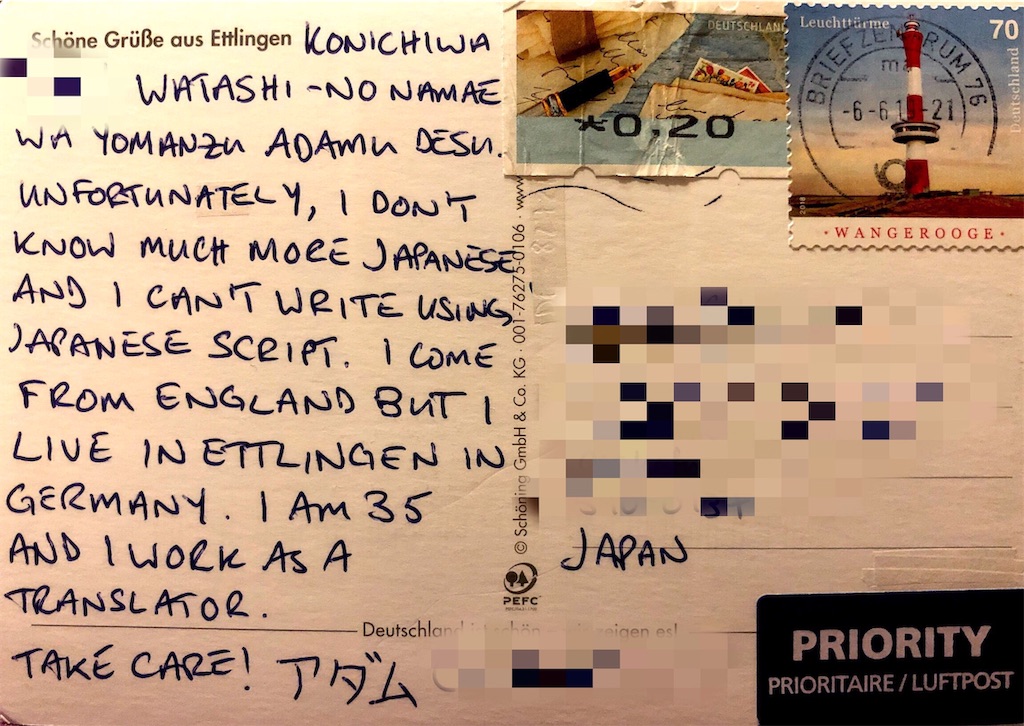 Schöne Grüße aus Ettlingen
KONICHIWA
WATASHI-NO NAMAE
WA YOMANZU ADAMU DESU.
UNFORTUNATELY, I DON'T
KNOW MUCH MORE JAPANESE
AND I CAN'T WRITE USING
JAPANESE SCRIPT. I COME
FROM ENGLAND BUT I
LIVE IN ETTLINGEN IN
GERMANY. I AM 35
AND I WORK AS A
TRANSLATOR.
TAKE CARE! アダム
© Schöning GmbH & Co. KG · 001-76275-0106 · www
PEFC
Deutschland
DEUTSCHLAND
*0,20
Leuchttürme
70
Deutschland
2018
WANGEROOGE
BRIEFZENTRUM 76
-21
JAPAN
PRIORITY
PRIORITAIRE / LUFTPOST